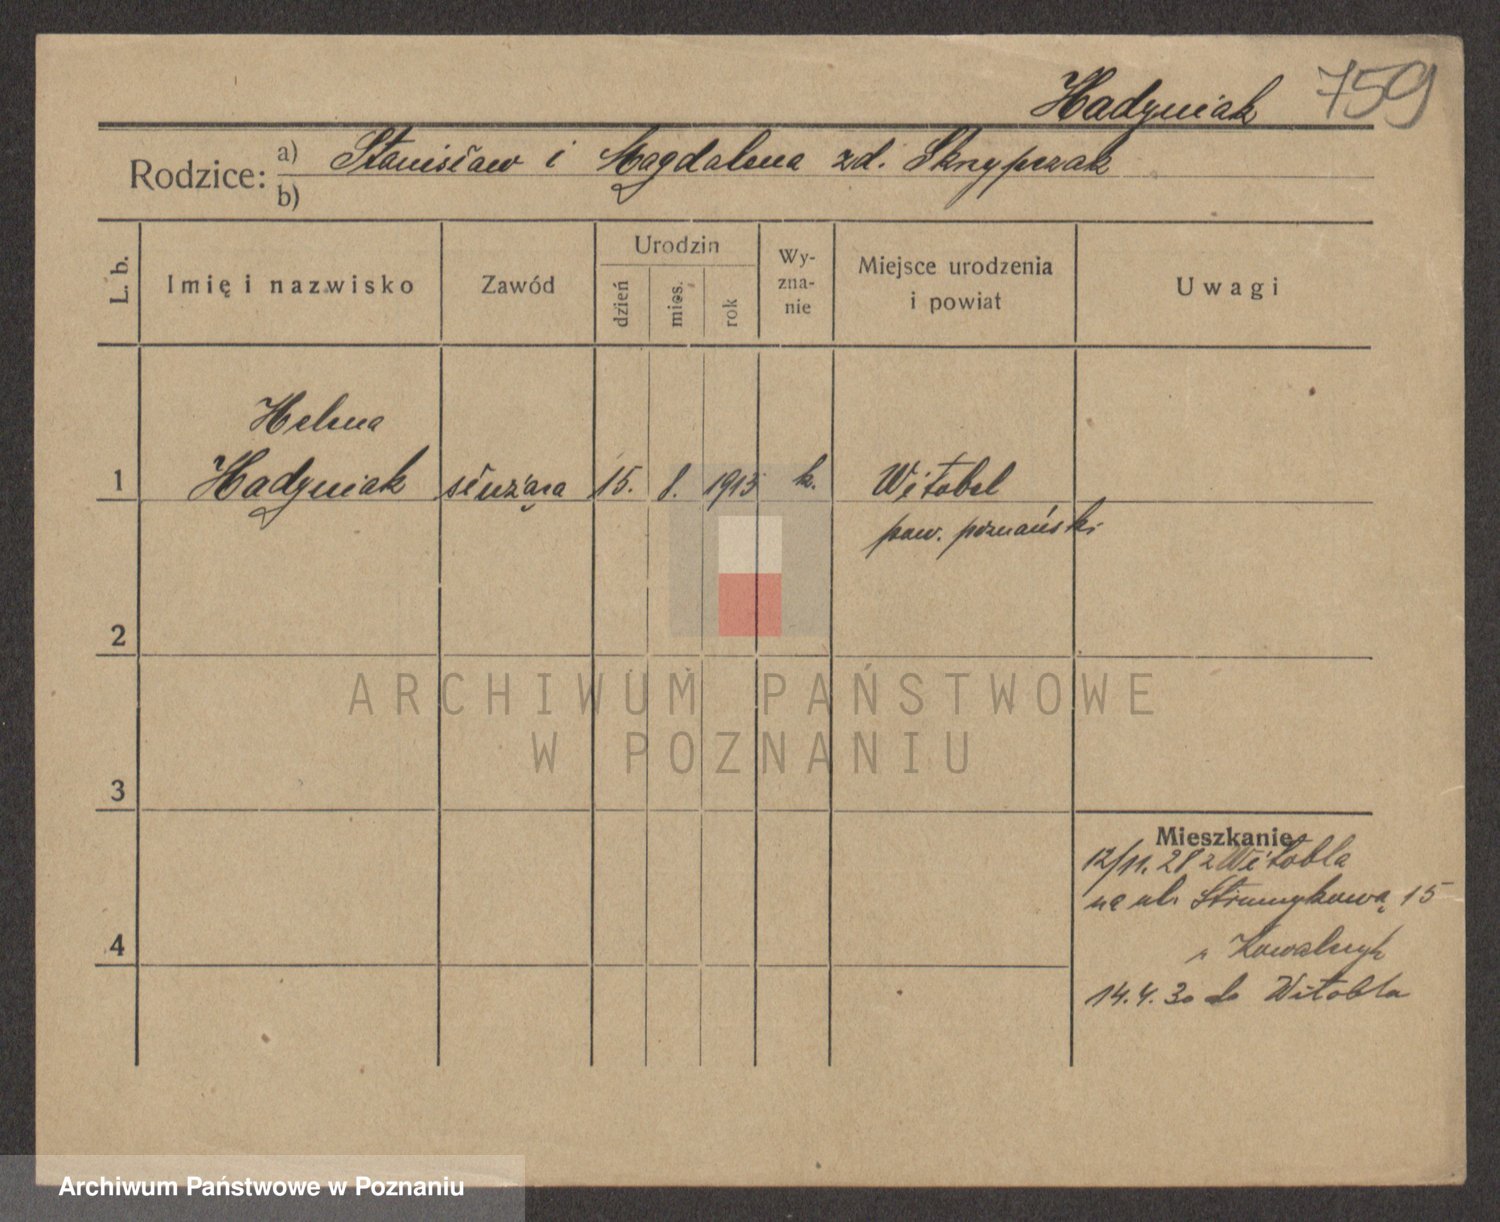 Hadyniak 759
Rodzice: a) Stanisław i Magdalena zd. Skrzypczak
b)
L. b. Imię i nazwisko Zawód Urodzin dzień mies. rok Wy-zna-nie Miejsce urodzenia i powiat Uwagi
Helena
1 Hadyniak służąca 15. 8. 1913 k. Witobel
pow. poznański
2
ARCHIWUM PAŃSTWOWE
W POZNANIU
3
Mieszkanie
12/11. 28 z Witobla
na ul. Strumykową 15
Kowalczyk
4
14.4.30 do Witobla
Archiwum Państwowe w Poznaniu